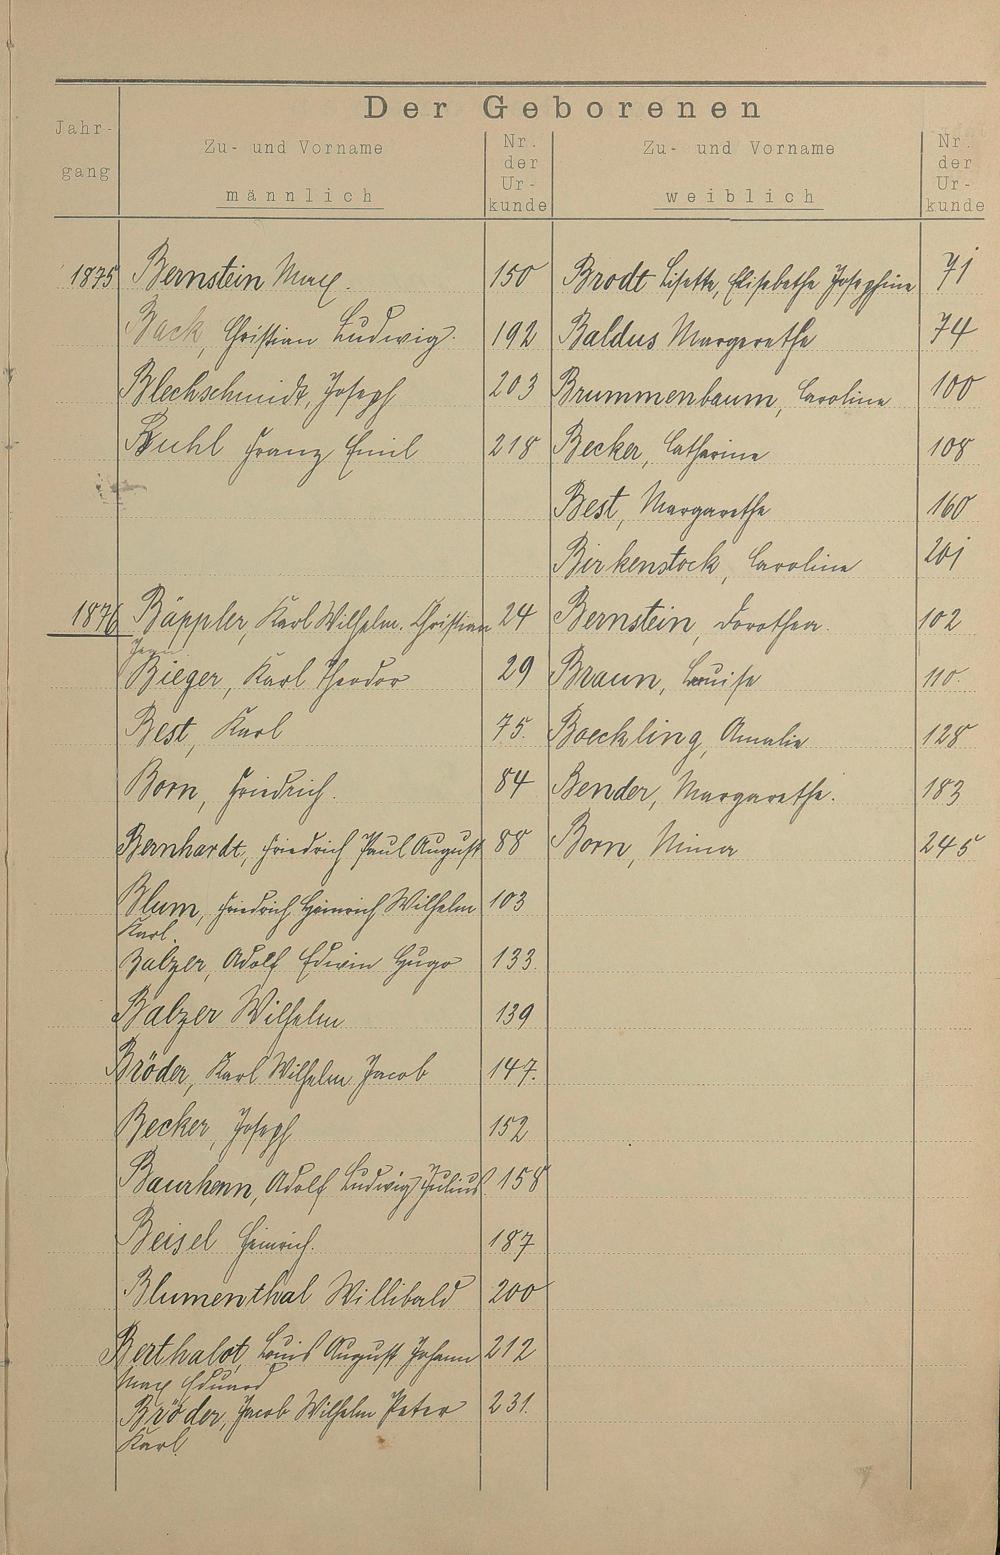 Der Geborenen
Jahr-
gang
Zu- und Vorname
männlich
Nr.
der
Ur-
kunde
Zu- und Vorname
weiblich
Nr.
der
Ur-
kunde
1875 Bernstein Max. 150 Brodt Lisette, Elisabetha Josephine 71
Back, Christian Ludwig. 192 Baldus Margarethe 74
Blechschmidt, Joseph 203 Brummenbaum, Caroline 100
Buhl Franz Emil 218 Becker, Catharina 108
Best, Margarethe 160
Birkenstock, Caroline 201
1876 Bäppler, Karl Wilhelm. Christian 24 Bernstein, Dorothea. 102
Bieger, Karl Theodor 29 Braun, Louise 110.
Best, Karl 75. Boeckling, Amalie 128
Born, Friedrich. 84 Bender, Margarethe. 183
Bernhardt, Friedrich Paul August 88 Born, Mina 245
Blum, Friedrich Heinrich Wilhelm 103
Karl.
Balzer, Adolf Edwin Hugo 133.
Balzer Wilhelm 139
Bröder, Karl Wilhelm Jacob 147.
Becker, Joseph 152
Baurhenn, Adolf Ludwig Julius. 158
Beisel Heinrich. 187
Blumenthal Willibald 200
Berthalot, Louis August Johann 212
Max Eduard
Bröder, Jacob Wilhelm Peter 231.
Karl.